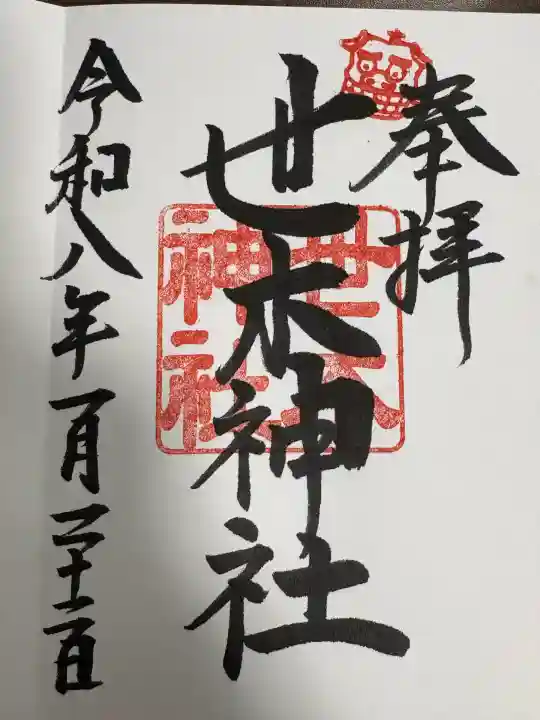 奉拝
世木神社
世木
神社
令和八年一月二十二日